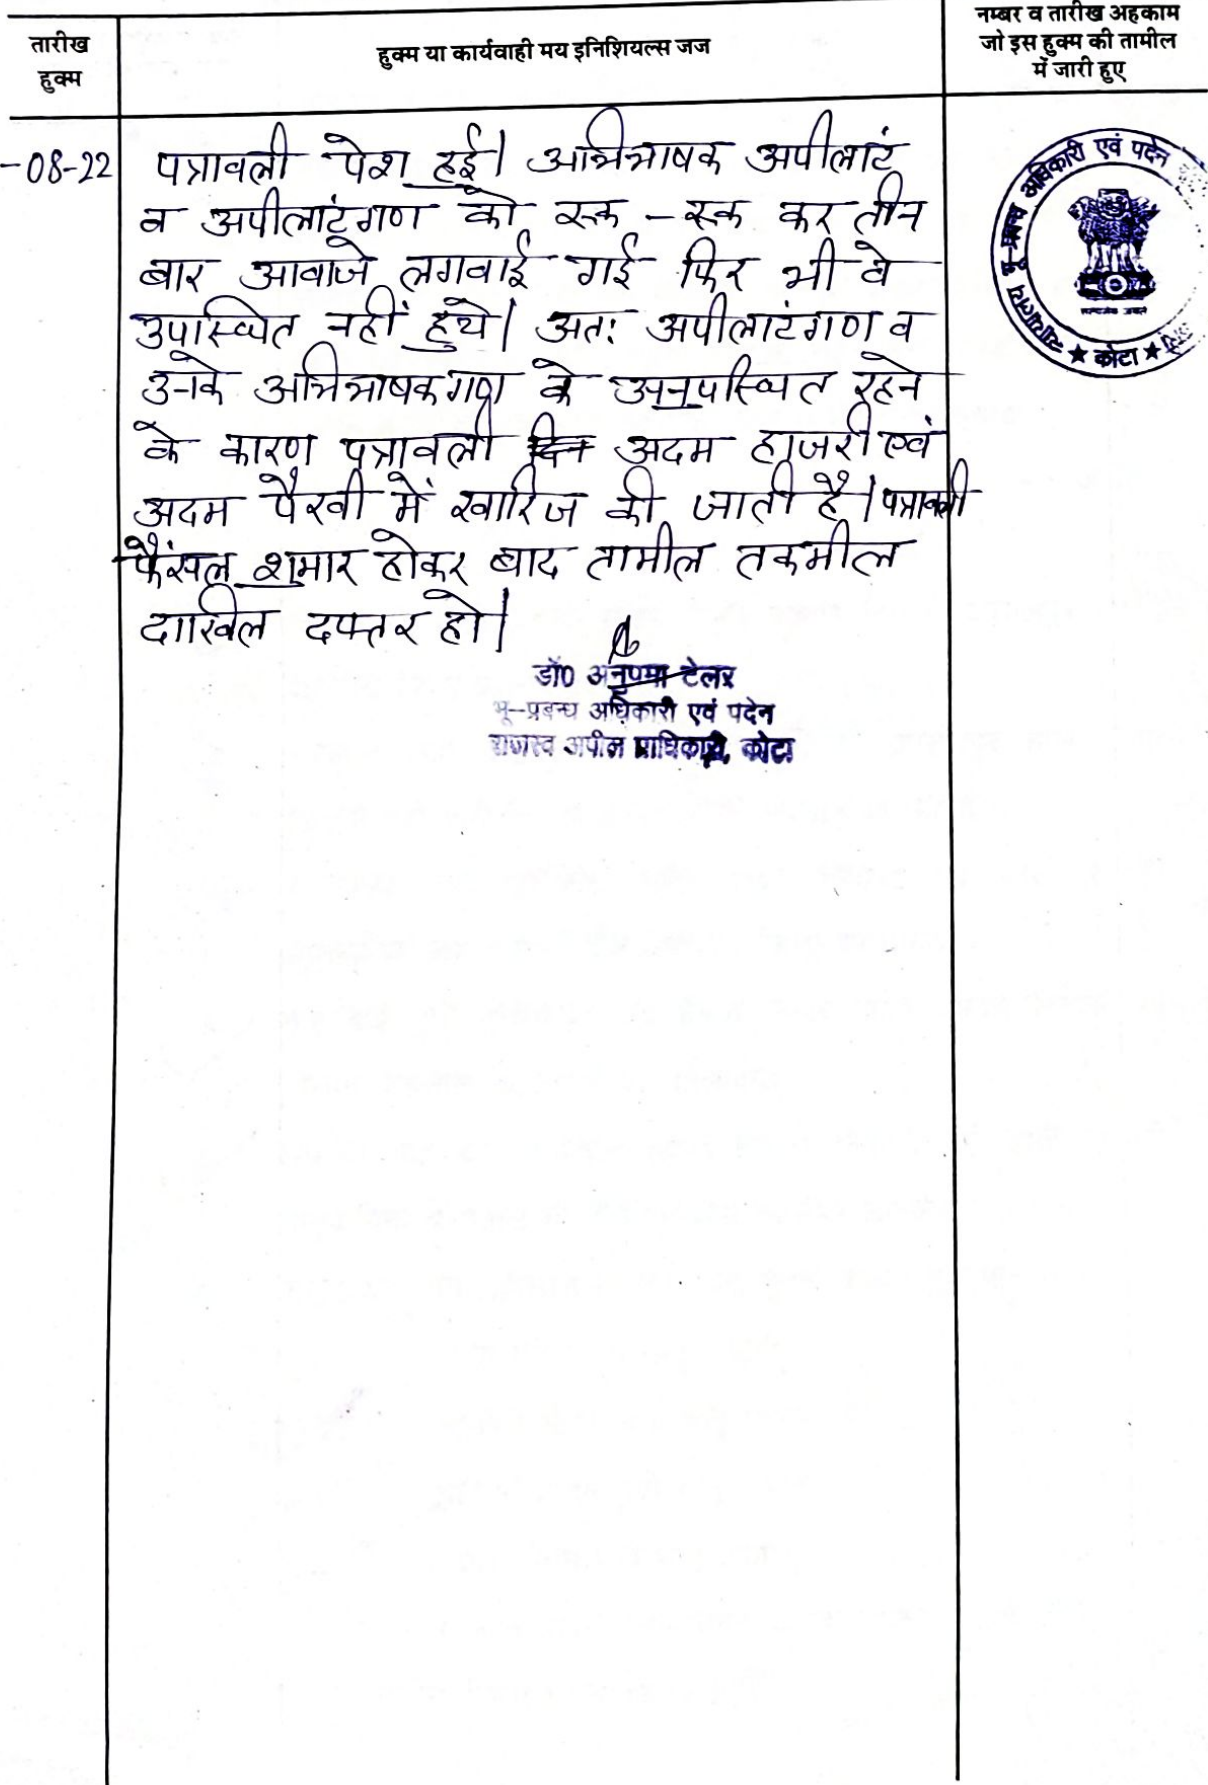 तारीख
हुक्म
हुक्म या कार्यवाही मय इनिशियल्स जज
नम्बर व तारीख अहकाम
जो इस हुक्म की तामील
में जारी हुए
-08-22
पत्रावली पेश हुई। अभिभाषक अपीलांट
व अपीलांटगण को एक - एक कर तीन
बार आवाजे लगवाई गई फिर भी वे
उपस्थित नहीं हुये। अत: अपीलाटंगण व
उनके अभिभाषकगण के अनुपस्थित रहने
के कारण पत्रावली अदम हाजरी एवं
अदम पैरवी में खारिज की जाती है। पत्रावली
फैंसल शुमार होकर बाद तामील तकमील
दाखिल दफ्तर हो।
डॉ0 अनुपमा टेलर
भू-प्रबन्ध अधिकारी एवं पदेन
राजस्व अपील प्राधिकारी, कोटा
न्यायालय भू-प्रबन्ध अधिकारी एवं पदेन
★ कोटा ★